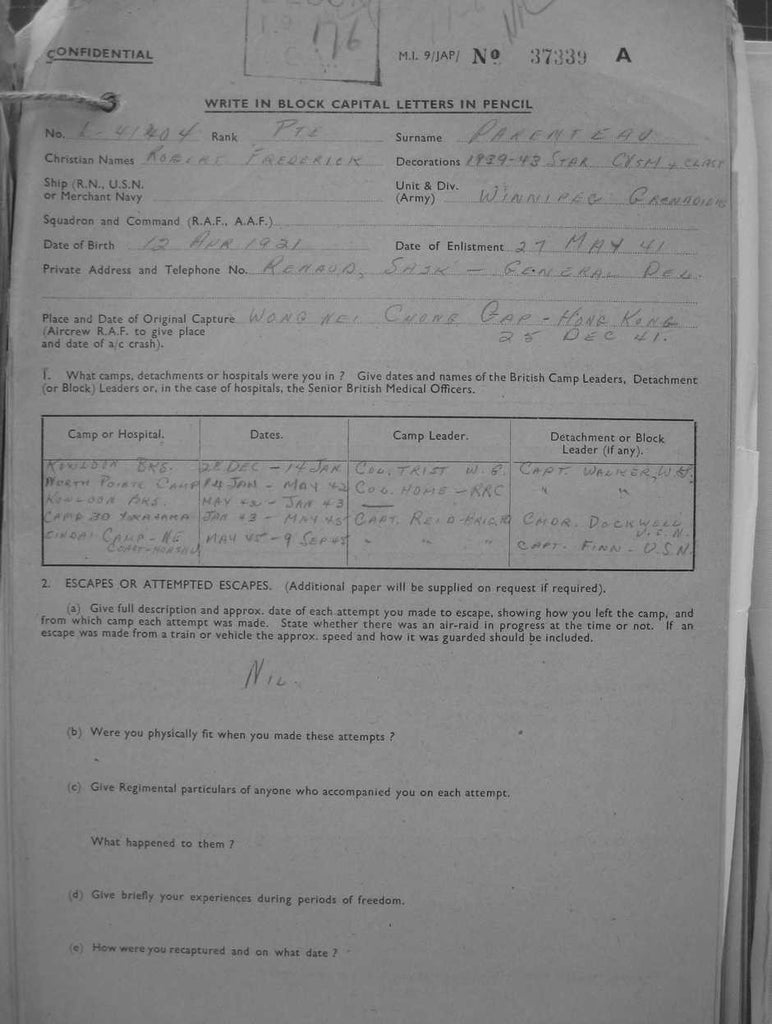 176
CONFIDENTIAL
M.I. 9/JAP/ No 37339 A
WRITE IN BLOCK CAPITAL LETTERS IN PENCIL
No. L-41404 Rank PTE Surname PARENTEAU
Christian Names ROBERT FREDERICK Decorations 1939-43 STAR CVSM & CLASP
Ship (R.N., U.S.N. or Merchant Navy Unit & Div. (Army) WINNIPEG GRENADIERS
Squadron and Command (R.A.F., A.A.F.)
Date of Birth 12 APR 1921 Date of Enlistment 27 MAY 41
Private Address and Telephone No. RENAUD, SASK - GENERAL DEL.
Place and Date of Original Capture WONG NEI CHONG GAP - HONG KONG
(Aircrew R.A.F. to give place 25 DEC 41.
and date of a/c crash).
1. What camps, detachments or hospitals were you in ? Give dates and names of the British Camp Leaders, Detachment
(or Block) Leaders or, in the case of hospitals, the Senior British Medical Officers.
Camp or Hospital. Dates. Camp Leader. Detachment or Block Leader (if any).
KOWLOON BKS. 28 DEC - 14 JAN COL. TRIST W.G. CAPT. WALKER, W.G.
NORTH POINTE CAMP JAN - MAY 42 COL. HOME - RRC " "
KOWLOON BKS. MAY 42 - JAN 43
CAMP 3D YOKAHAMA JAN 43 - MAY 45 CAPT. REID CMDR. DOCKWELL U.S.N.
SINDAI CAMP - NE COAST - HONSHU MAY 45 - 9 SEP 45 " " " CAPT. FINN - U.S.N.
2. ESCAPES OR ATTEMPTED ESCAPES. (Additional paper will be supplied on request if required).
(a) Give full description and approx. date of each attempt you made to escape, showing how you left the camp, and
from which camp each attempt was made. State whether there was an air-raid in progress at the time or not. If an
escape was made from a train or vehicle the approx. speed and how it was guarded should be included.
NIL.
(b) Were you physically fit when you made these attempts ?
(c) Give Regimental particulars of anyone who accompanied you on each attempt.
What happened to them ?
(d) Give briefly your experiences during periods of freedom.
(e) How were you recaptured and on what date ?